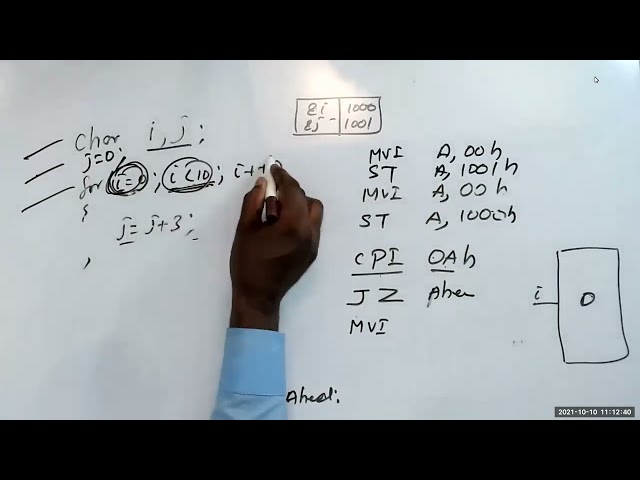 char i, j;
j=0;
for (i=0; i<10; i++
{
j = j+3;
&i 1000
&j 1001
MVI A, 00h
ST A, 1001h
MVI A, 00h
ST A, 1000h
CPI 0Ah
JZ Ahea
MVI
i 0
Ahead:
2021-10-10 11:12:40